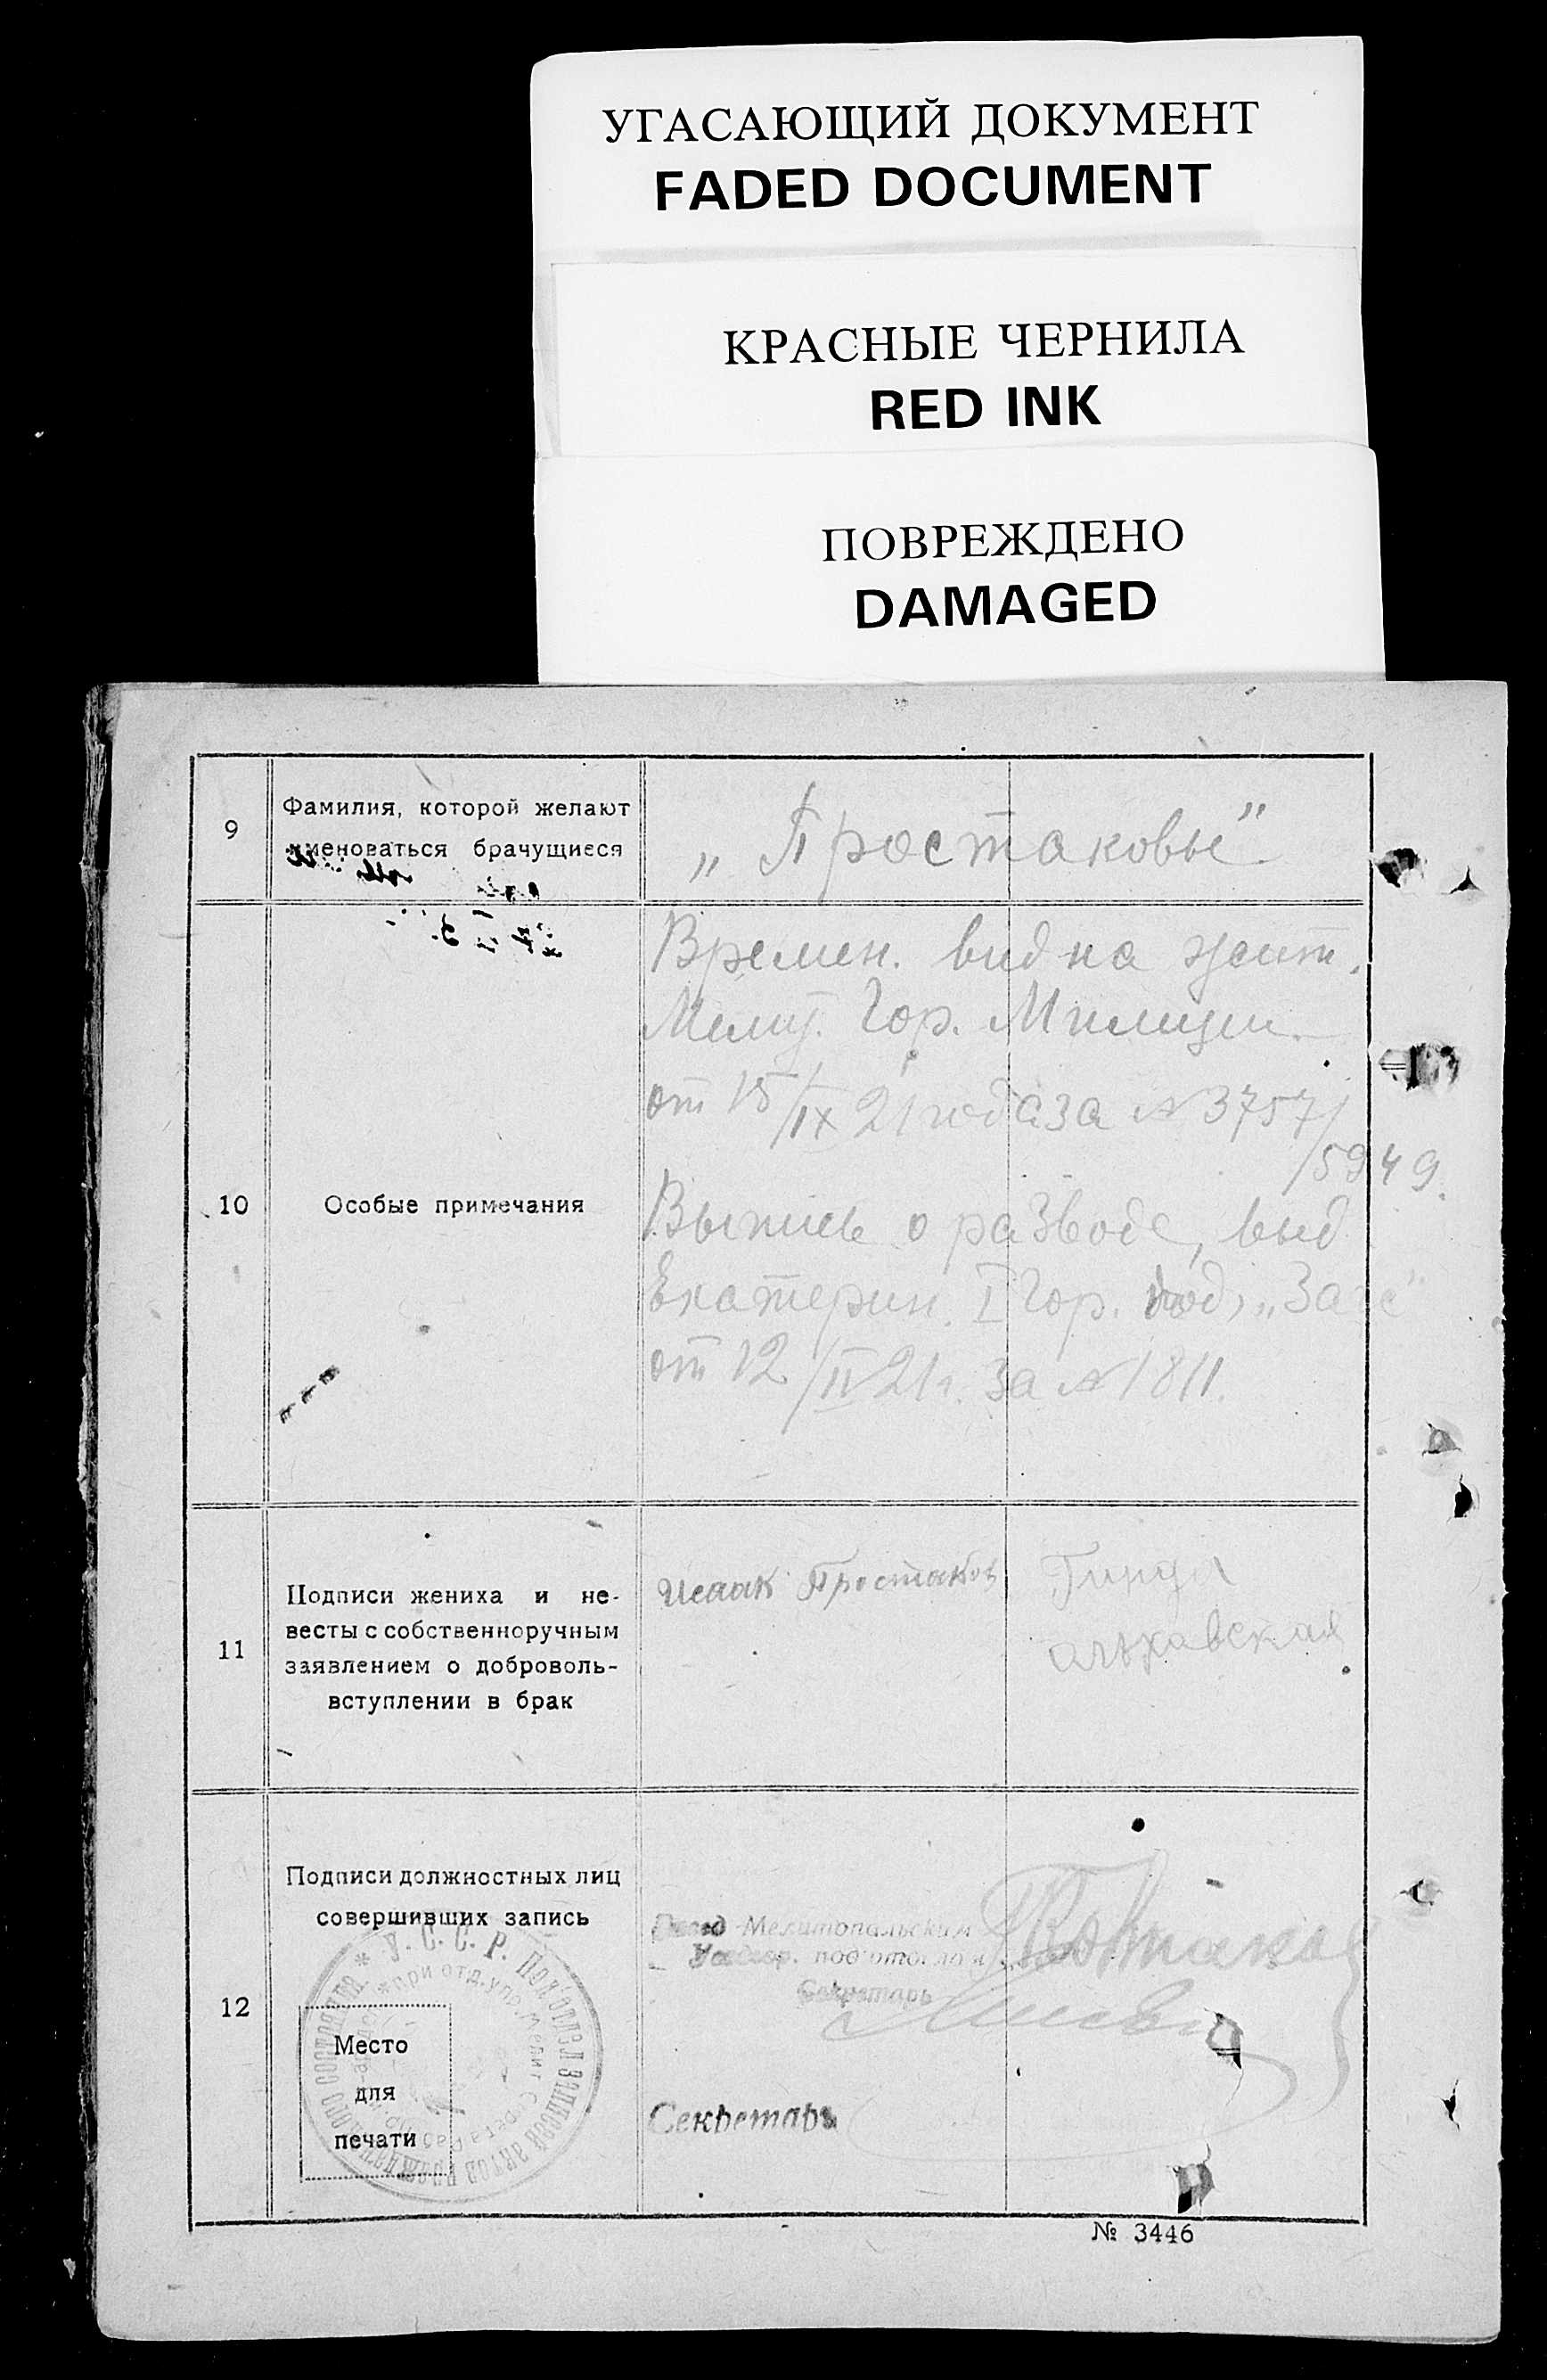 УГАСАЮЩИЙ ДОКУМЕНТ
FADED DOCUMENT
КРАСНЫЕ ЧЕРНИЛА
RED INK
ПОВРЕЖДЕНО
DAMAGED
9
Фамилия, которой желают
именоваться брачущиеся
„Простаковы"
10
Особые примечания
Времен. вид на жит.
Мелит. Гор. Милиции
от 15/IX 21 года за № 3757/
/5949.
Выпись о разводе, выд
Екатерин. I Гор. под, „Загс"
от 12/IV 21 г. за № 1811.
11
Подписи жениха и не-
весты с собственноручным
заявлением о доброволь-
вступлении в брак
Исаак Простаков
12
Подписи должностных лиц
совершивших запись
Мелитопольским
подотделом
Секретарь
Секретарь
У. С. С. Р. Под'отдел записей актов гражданского состояния
при отд. упр. Мелит.
Место
для
печати
№ 3446